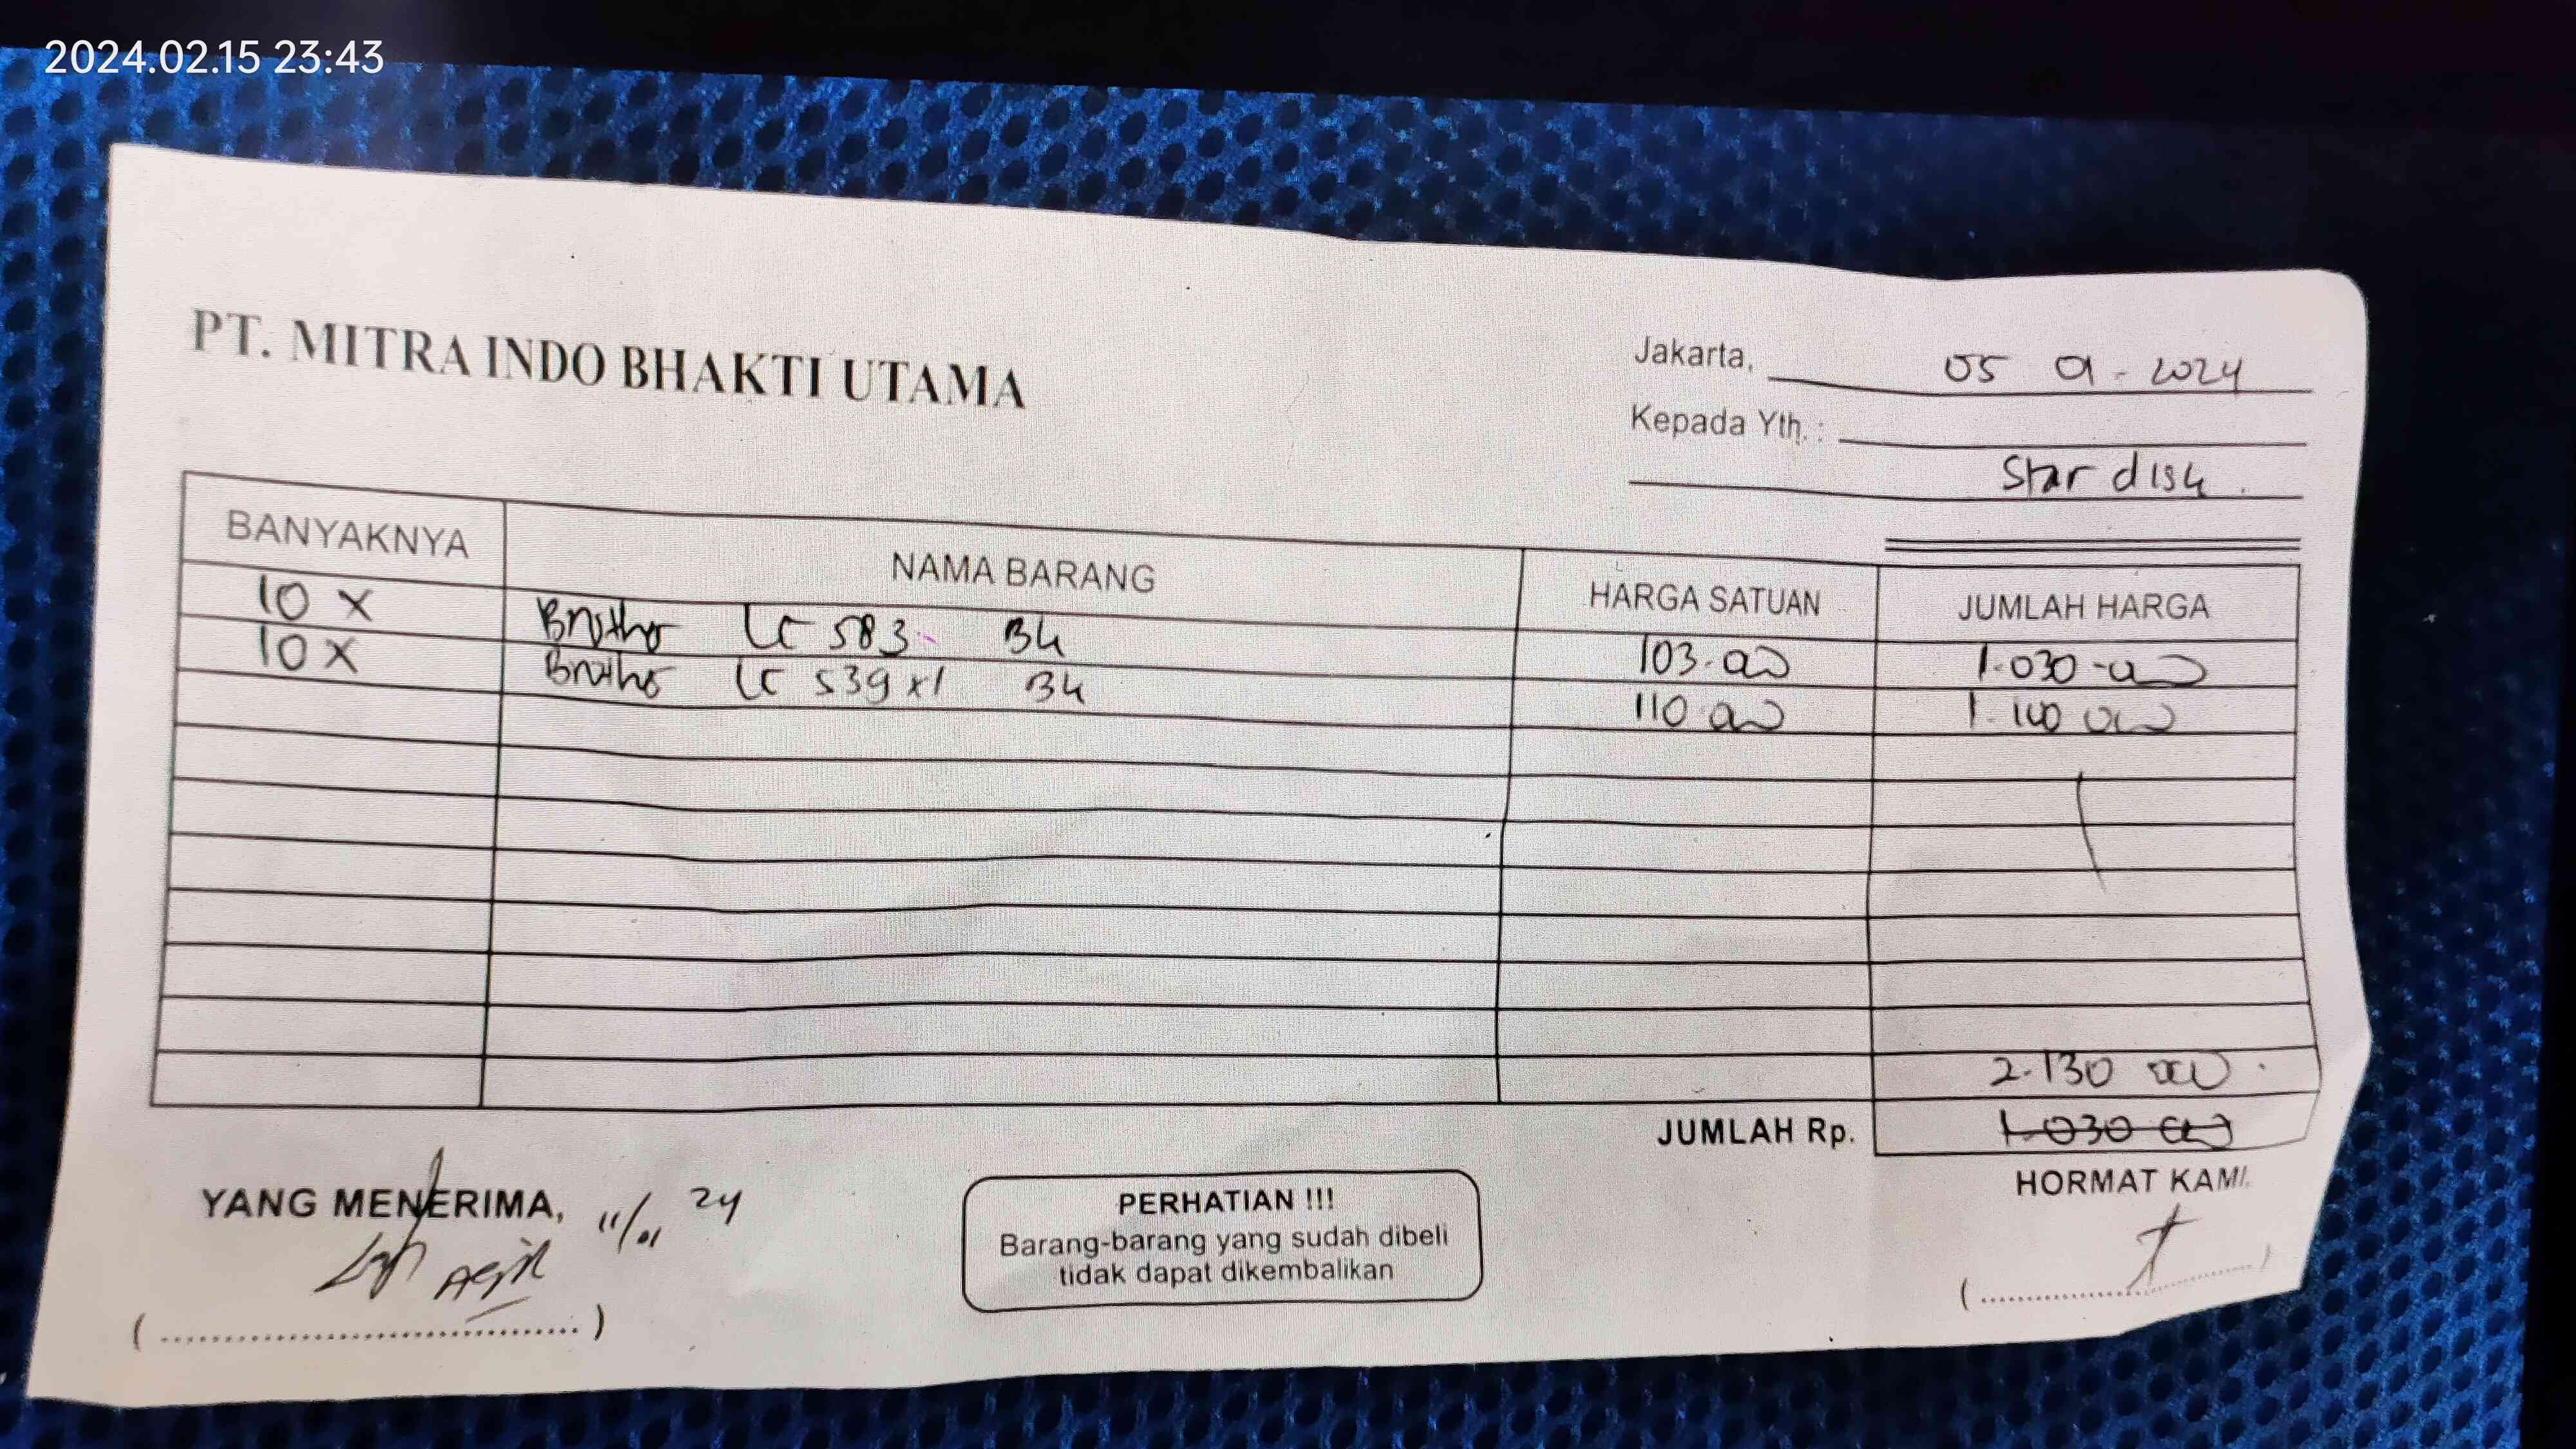 2024.02.15 23:43
PT. MITRA INDO BHAKTI UTAMA
Jakarta, 05 01 - 2024
Kepada Yth. :
Star disk.
BANYAKNYA NAMA BARANG HARGA SATUAN JUMLAH HARGA
10 X Brother LC 583 Bk 103.000 1.030.000
10 X Brother LC 539 xl Bk 110.000 1.100 000
2.130 000
JUMLAH Rp. 1.030 000
YANG MENERIMA, 11/01 24
PERHATIAN !!!
Barang-barang yang sudah dibeli
tidak dapat dikembalikan
HORMAT KAMI.
(....................................)
(....................................)